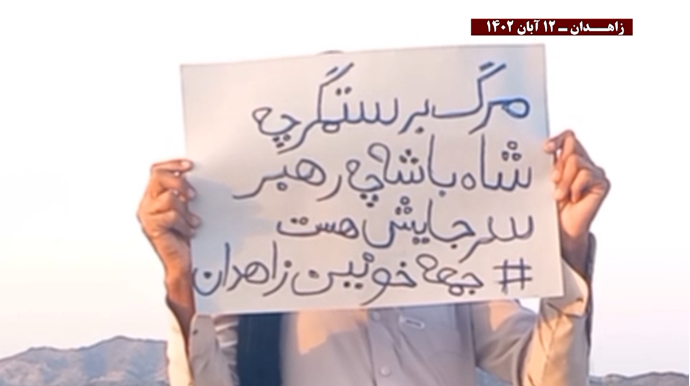 زاهدان – ۱۲ آبان ۱۴۰۲
مرگ بر ستمگر چه
شاه باشه چه رهبر
سر جایش هست
# جمعه خونین زاهدان